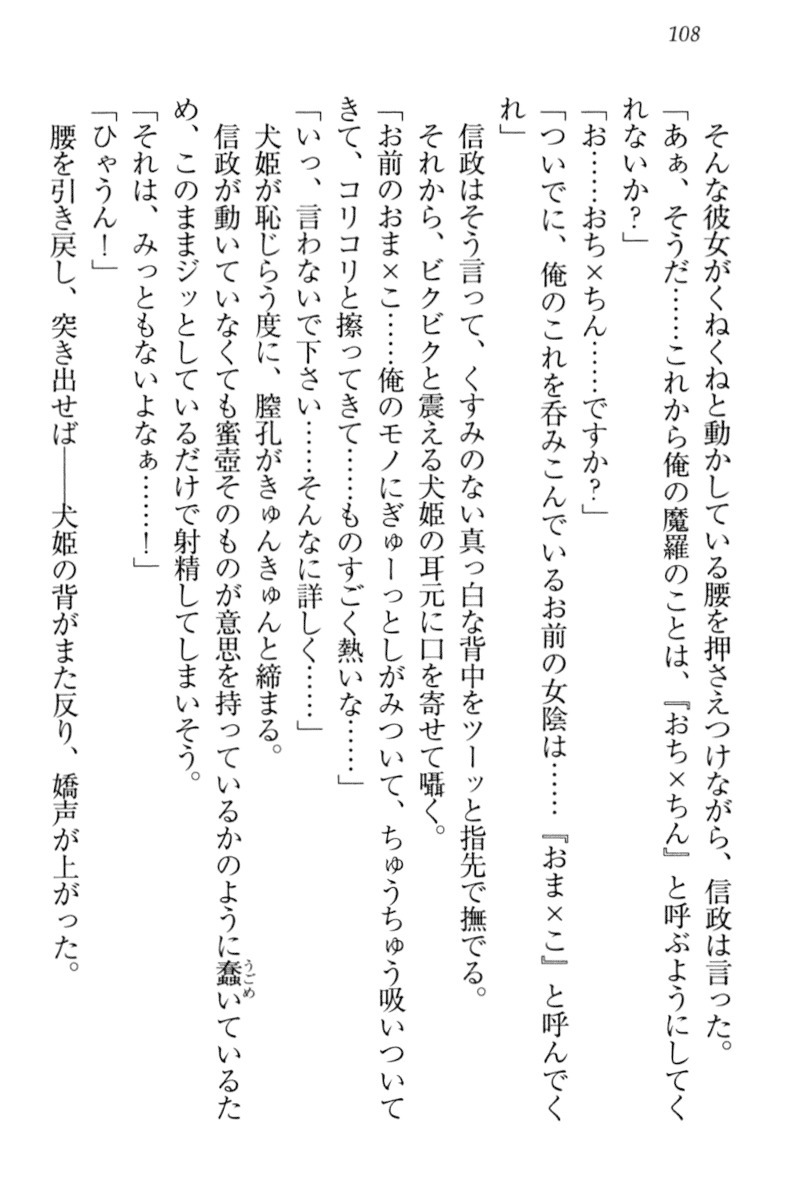 108
そんな彼女がくねくねと動かしている腰を押さえつけながら、信政は言った。
「あぁ、そうだ……これから俺の魔羅のことは、『おち×ちん』と呼ぶようにしてく
れないか？」
「お……おち×ちん……ですか？」
「ついでに、俺のこれを呑みこんでいるお前の女陰は……『おま×こ』と呼んでく
れ」
信政はそう言って、くすみのない真っ白な背中をツーッと指先で撫でる。
それから、ビクビクと震える犬姫の耳元に口を寄せて囁く。
「お前のおま×こ……俺のモノにぎゅーっとしがみついて、ちゅうちゅう吸いついて
きて、コリコリと擦ってきて……ものすごく熱いな……」
「いっ、言わないで下さい……そんなに詳しく……」
犬姫が恥じらう度に、膣孔がきゅんきゅんと締まる。
信政が動いていなくても蜜壺そのものが意思を持っているかのように蠢うごめいているた
め、このままジッとしているだけで射精してしまいそう。
「それは、みっともないよなぁ……！」
「ひゃうん！」
腰を引き戻し、突き出せば――犬姫の背がまた反り、嬌声が上がった。